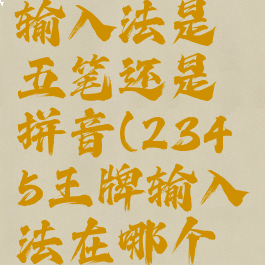 输入法是
五笔还是
拼音(234
5王牌输入
法在哪个